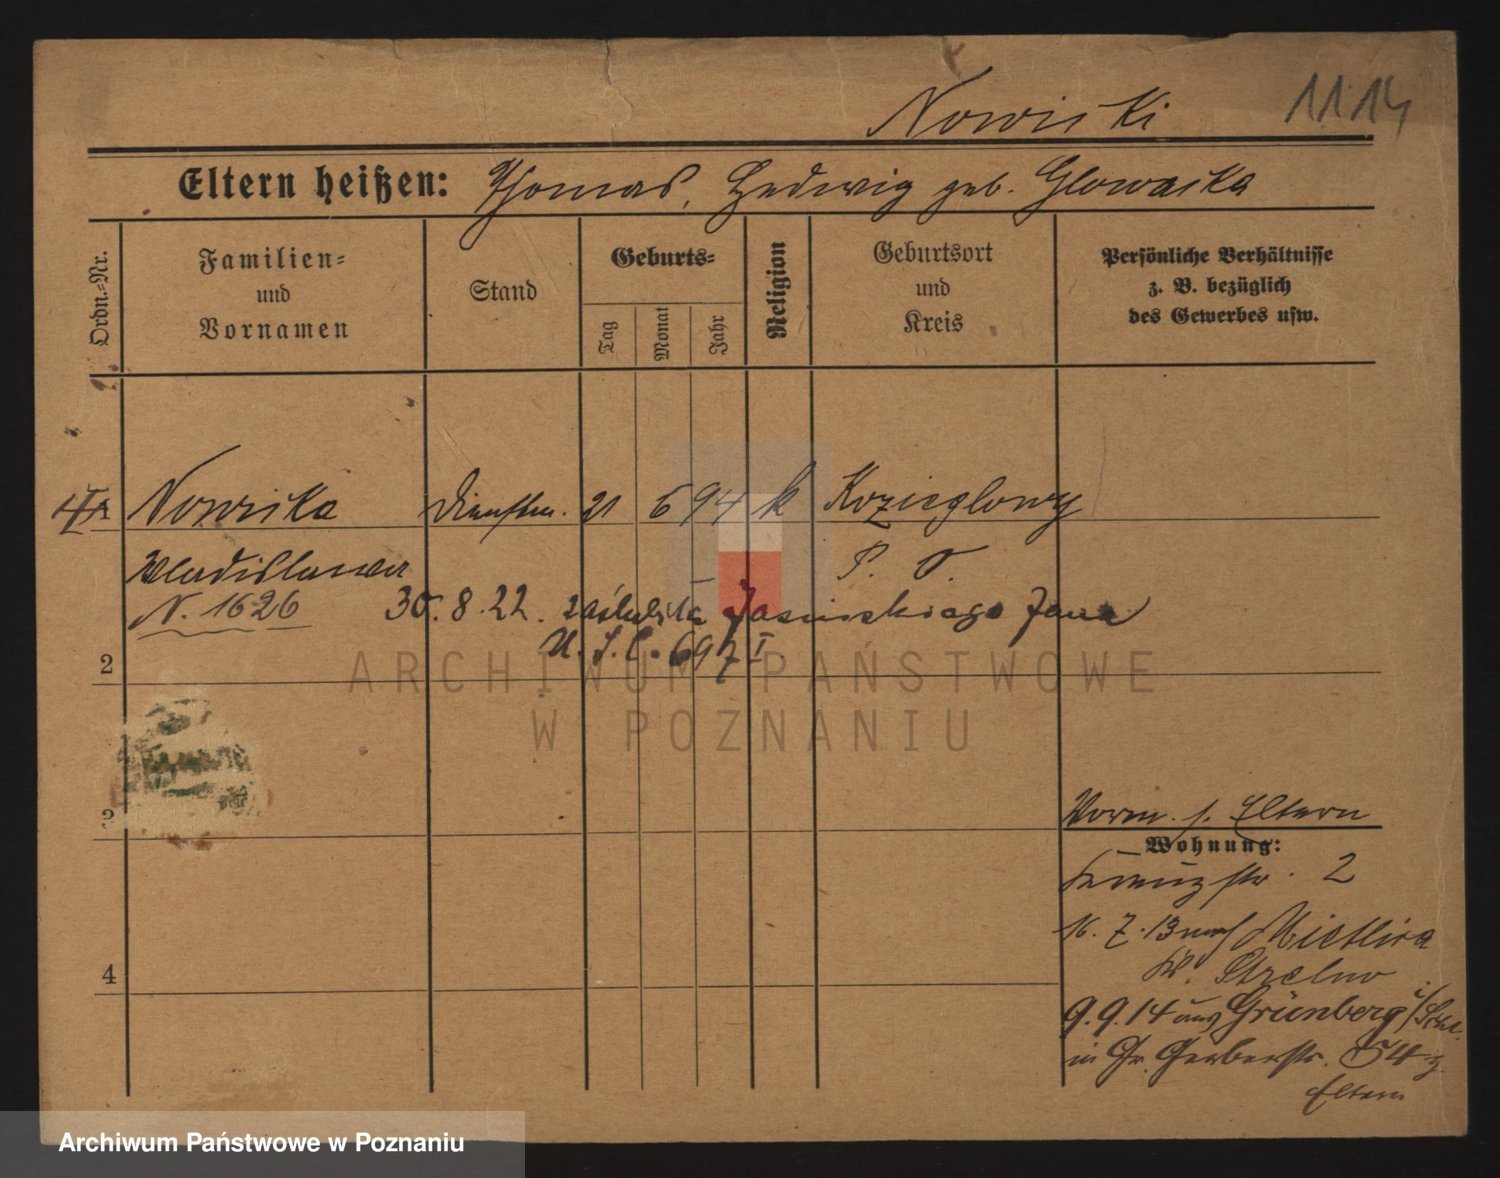 Nowicki 1114
Eltern heißen: Thomas, Hedwig geb. Glowacka
Ordn.-Nr.
Familien-
und
Vornamen
Stand
Geburts-
Tag
Monat
Jahr
Religion
Geburtsort
und
Kreis
Persönliche Verhältnisse
z. B. bezüglich
des Gewerbes usw.
1 Nowicka Dienstm. 21 6 94 k Kozieglowy
Wladislawa P. O.
N. 1626 30.8.22. zaślubiła Jasinskiego Jana
U.S.C. 697 I
2
3
4
Vorm. s. Eltern
Wohnung:
Kreuzstr. 2
16. 7. 13 nach Mietlica
Kr. Strelno
9.9.14 aus Grünberg i/Schl.
in Gr. Gerberstr. 54 z.
Eltern
ARCHIWUM PAŃSTWOWE
W POZNANIU
Archiwum Państwowe w Poznaniu